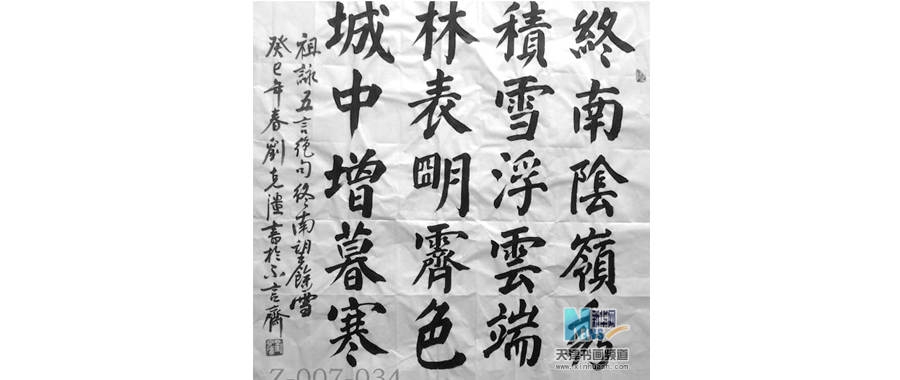 終南陰嶺秀
積雪浮雲端
林表明霽色
城中增暮寒
祖詠五言絕句終南望餘雪
癸巳年春劉克書於不言齋
天津书画频道
Z-007-034